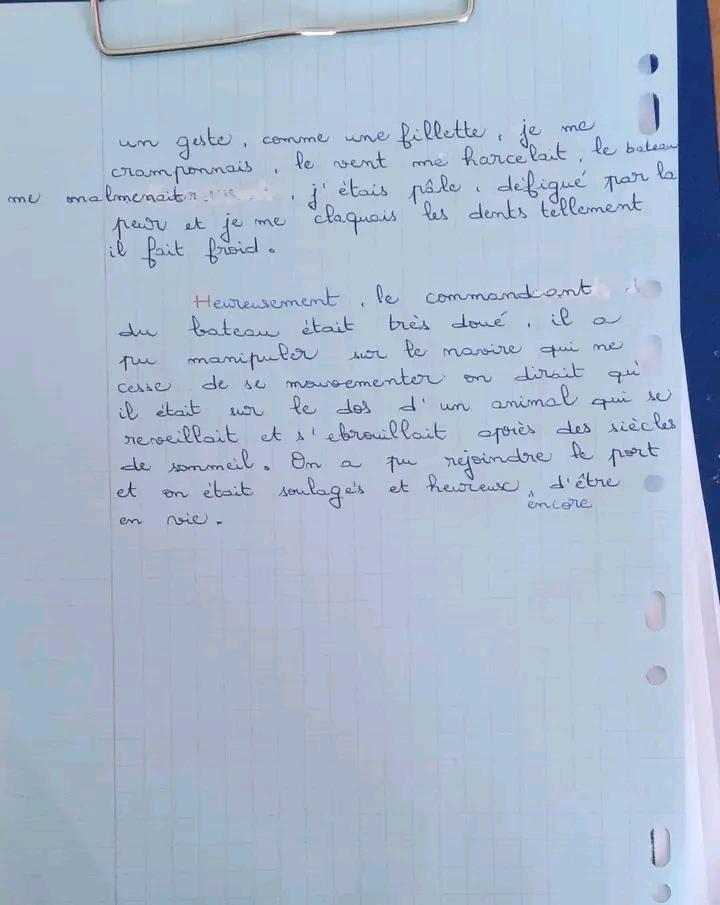 un geste, comme une fillette, je me
cramponnais, le vent me harcelait, le bateau
me malmenait, j'étais pâle, défigué par la
peur et je me claquais les dents tellement
il fait froid.
Heureusement, le commandant
du bateau était très doué, il a
pu manipuler sur le navire qui ne
cesse de se mouvementer on dirait qu'
il était sur le dos d'un animal qui se
reveillait et s'ebrouillait après des siècles
de sommeil. On a pu rejoindre le port
et on était soulagés et heureux d'être
encore
en vie.